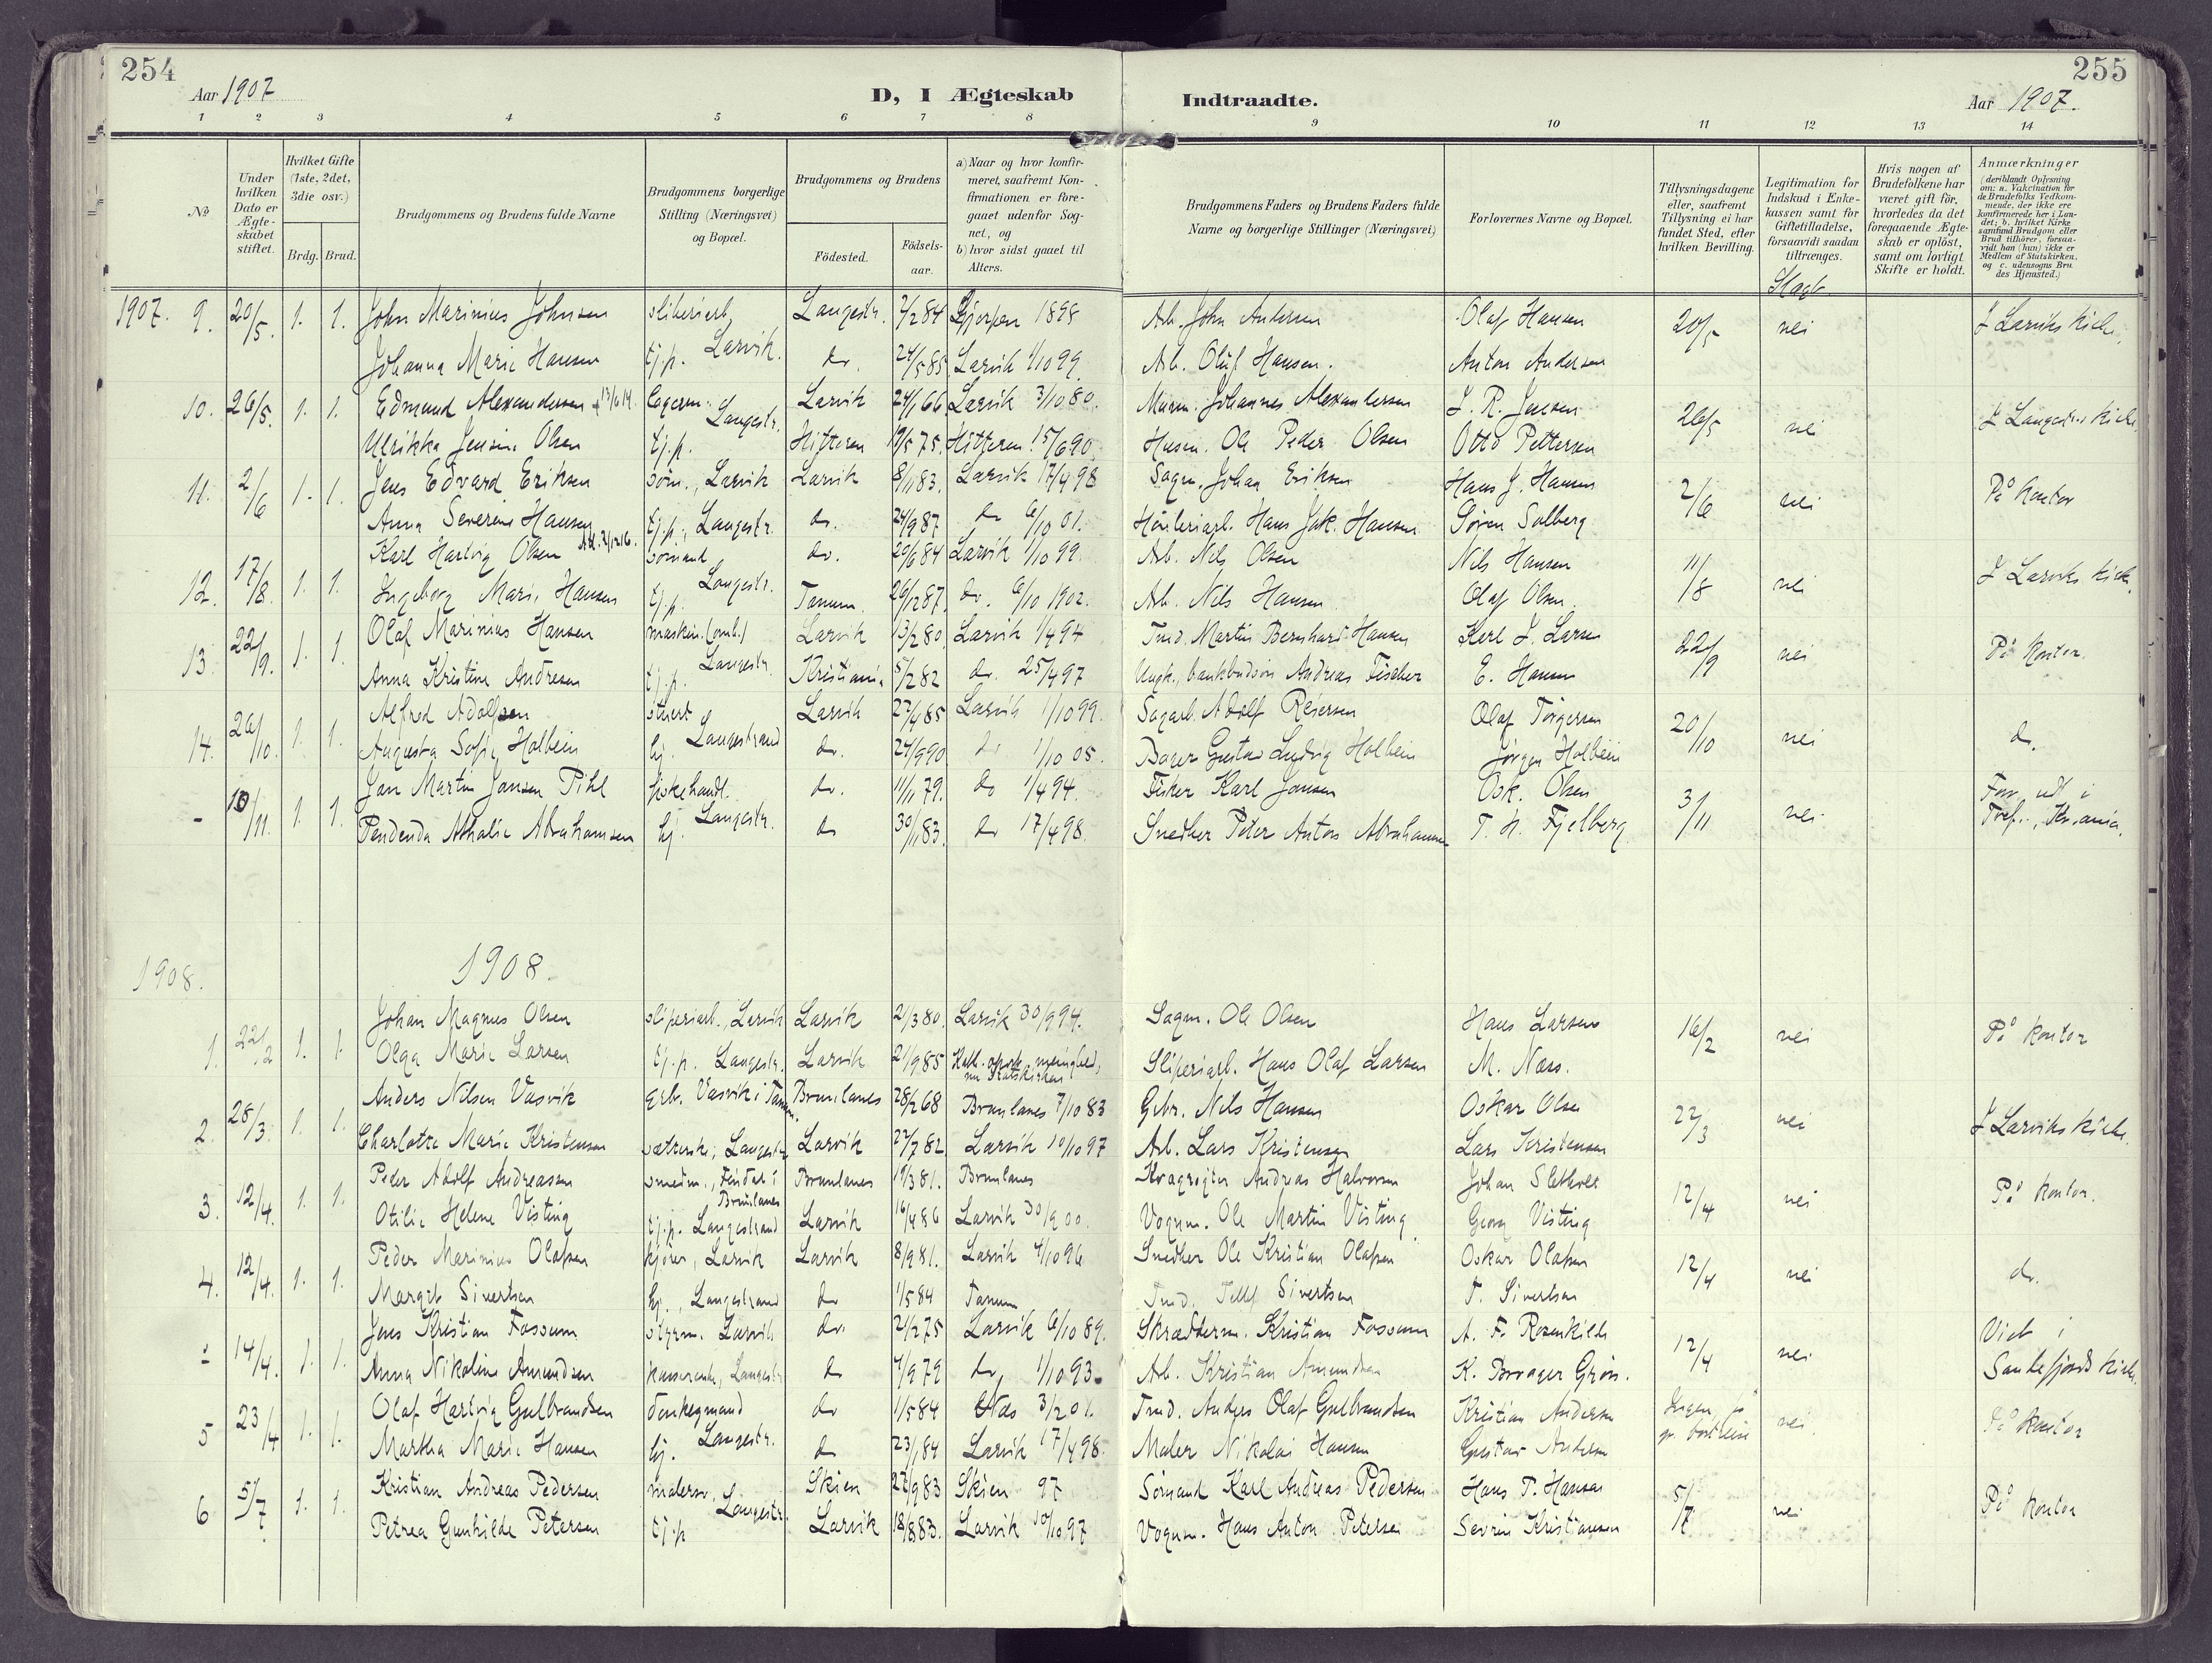 254
255
Aar 1907
D, I Ægteskab
Indtraadte.
Aar 1907.
1 2 3 4 5 6 7 8 9 10 11 12 13 14
No
Under hvilken Dato er Ægteskabet stiftet.
Hvilket Gifte (1ste, 2det, 3die osv.)
Brdg. Brud.
Brudgommens og Brudens fulde Navne
Brudgommens borgerlige Stilling (Næringsvei) og Bopæl.
Brudgommens og Brudens
Födested.
Födsels-aar.
a) Naar og hvor konfirmeret, saafremt Konfirmationen er foregaaet udenfor Sognet, og
b) hvor sidst gaaet til Alters.
Brudgommens Faders og Brudens Faders fulde Navne og borgerlige Stillinger (Næringsvei)
Forlovernes Navne og Bopæl.
Tillysningsdagene eller, saafremt Tillysning ei har fundet Sted, efter hvilken Bevilling.
Legitimation for Indskud i Enkekassen samt for Giftetilladelse, forsaavidt saadan tiltrænges.
Hvis nogen af Brudefolkene har været gift för, hvorledes da det foregaaende Ægteskab er oplöst, samt om lovligt Skifte er holdt.
Anmærkninger (deriblandt Oplysning om: a. Vakcination for de Brudefolks Vedkommende, der ikke ere konfirmerede her i Landet; b. hvilket Kirkesamfund Brudgom eller Brud tilhörer, forsaavidt han (hun) ikke er Medlem af Statskirken, og c. udensogns Bruders Hjemsted.)
Slagt
1907. 9. 20/5. 1. 1. John Marinius Johnsen sliberiarb, Langestr. 7/2 84 Gjerpen 1898 Arb. John Andersen Olaf Hansen 20/5 nei I Larviks kirke.
Johanna Marie Hansen tj.p. Larvik. do. 24/5 85 Larvik 1/10 99. Arb. Oluf Hansen. Anton Andersen
10. 26/5. 1. 1. Edmund Alexandersen Langestr. Larvik 24/1 66 Larvik 3/10 80. Johannes Alexandersen J. R. Jensen 26/5 nei I Langestr. kirke
Ulrikka Jensine Olsen tj.p. Hitteren 19/5 75. Hitteren 15/6 90. Husm. Ole Peder Olsen Otto Pettersen
11. 2/6 1. 1. Jens Edvard Eriksen söm., Larvik Larvik 8/1 83. Larvik 17/4 98 Sagm. Johan Eriksen Hans J. Hansen 2/6 nei På kontor
Anna Severine Hansen tj.p., Langestr. do. 24/9 87 do 6/10 01. Hövleriarb. Hans Jak. Hansen Sören Solberg
12. 17/8. 1. 1. Karl Hartvig Olsen sömand do. 20/6 84 Larvik 1/10 99. Arb. Nils Olsen Nils Hansen 11/8 nei I Larviks kirke.
Ingeborg Marie Hansen tj.p. Langestr. Tanum. 26/12 87. do. 6/10 1902. Arb. Nils Hansen Olaf Olsen
13. 22/9. 1. 1. Olaf Marinius Hansen maskin.(omb.) Larvik 13/2 80. Larvik 1/4 94 Tmd. Martin Bernhard Hansen Karl J. Larsen 22/9 nei På kontor.
Anna Kristine Andresen tj.p. Langestr. Kristiania 5/2 82 do. 25/4 97 Ungk., bankbudsön Andreas Fischer E. Hansen
14. 20/10. 1. 1. Alfred Adolfsen stuert Larvik 27/4 85 Larvik 1/10 99. Sagarb. Adolf Reiersen Olaf Torgersen 20/10 nei do.
Augusta Sofie Holbein hj. Langestrand do. 24/9 90 do 1/10 05. Bager Gustav Ludvig Holbein Jörgen Holbein
- 10/11. 1. 1. Jan Martin Jansen Pihl fiskehandl. do. 11/11 79. do 1/4 94. Fisker Karl Jansen Osk. Olsen 3/11 nei
Pendenda Athalie Abrahamsen hj. Langestr. do 30/11 83. do 17/4 98. Snedker Peter Anton Abrahamsen T. H. Fjelberg
1908.
1908.
1. 22/2 1. 1. Johan Magnus Olsen sliperiarb., Larvik Larvik 21/3 80. Larvik 30/9 94. Sagm. Ole Olsen Hans Larsen 16/2 nei På kontor
Olga Marie Larsen tj.p. Langestr. Larvik 21/9 85 nu Statskirken Sliperiarb. Hans Olaf Larsen M. Næss.
2. 28/3. 1. 1. Anders Nilsen Vasvik Gbr. Vasvik i Tanum, Brunlanes 28/2 68 Brunlanes 7/10 83 Gbr. Nils Hansen Oskar Olsen 22/3 nei I Larviks kirke.
Charlotte Marie Kristensen sætterske, Langestr. Larvik 27/7 82 Larvik 10/10 97 Arb. Lars Kristensen Lars Kristensen
3. 12/4. 1. 1. Peder Adolf Andreassen smedm., i Brunlanes Brunlanes 19/3 81. Brunlanes Kvægrögter Andreas Halvorsen Johan Sletholt 12/4 nei På kontor.
Otilie Helene Visting tj.p. Langestrand Larvik 16/4 86 Larvik 30/9 00. Vognm. Ole Martin Visting Georg Visting
4. 12/4. 1. 1. Peder Marinius Olafsen kjörer, Larvik Larvik 8/9 81. Larvik 4/10 96 Snedker Ole Kristian Olafsen Oskar Olafsen 12/4 nei do.
Margit Sivertsen hj., Langestrand do 1/5 84 Tanum Tmd. Tellef Sivertsen T. Sivertsen
- 14/4. 1. 1. Jens Kristian Fossum styrm. Larvik do. 21/2 75 Larvik 6/10 89. Skrædderm. Kristian Fossum A. F. Rosenkilde 12/4 nei Viet i
Anna Nikoline Amundsen kassererske, Langestr. do 7/9 79 do, 1/10 93. Arb. Kristian Amundsen Sandefjords kirke.
5 23/4 1. 1. Olaf Hartvig Gulbrandsen donkeymand do 1/5 84 Næs 3/2 01. Tmd. Anders Olaf Gulbrandsen Kristian Andersen Ingen, nei. På kontor
Martha Marie Hansen hj. Langestr. do 23/1 84 Larvik 17/4 98. Maler Nikolai Hansen Gustav Andersen
6 5/7. 1. 1. Kristian Andreas Pedersen malersv. Skien 27/9 83 Skien 97 Sömand Karl Andreas Pedersen Hans T. Hansen 5/7 nei På kontor
Petrea Gunhilde Petersen tj.p Langestr. Larvik 18/8 83. Larvik 10/10 97 Vognm. Hans Anton Petersen Sevrin Kristiansen